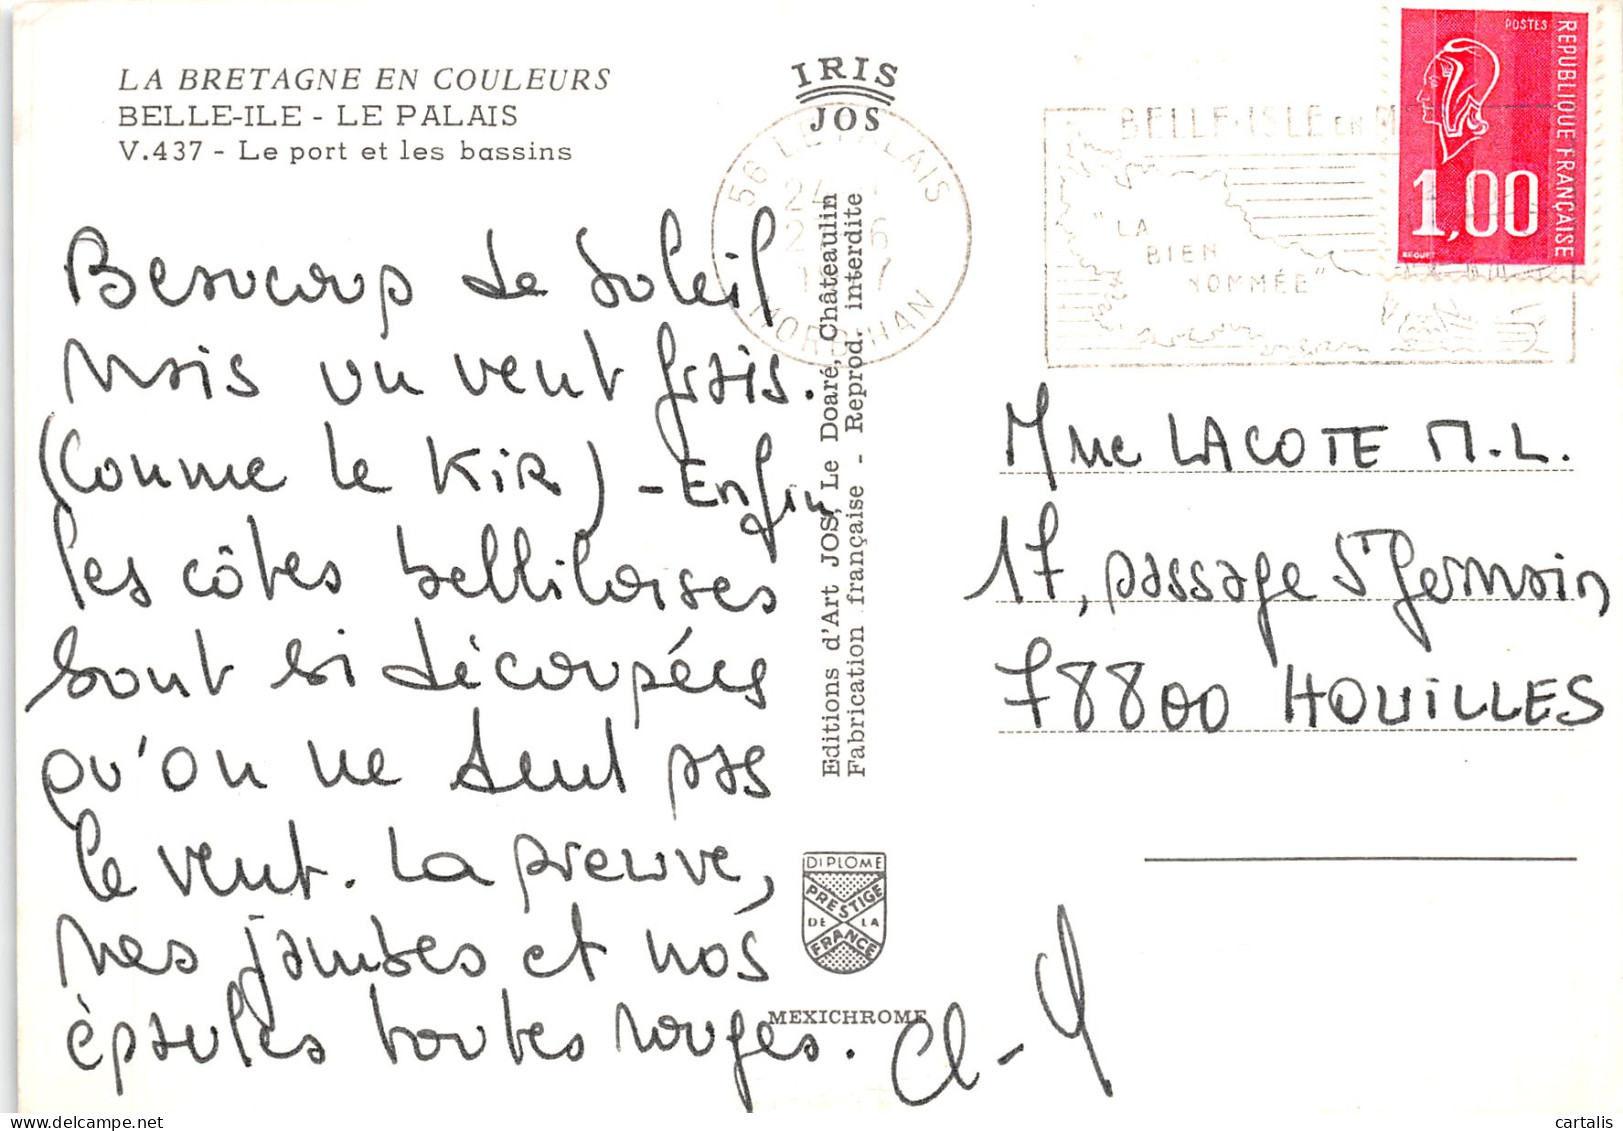 LA BRETAGNE EN COULEURS
BELLE-ILE - LE PALAIS
V.437 - Le port et les bassins
IRIS
JOS
56 LE PALAIS
MORBIHAN
BELLE-ISLE EN
"LA
BIEN
NOMMÉE"
POSTES
REPUBLIQUE FRANÇAISE
1,00
Beaucoup de soleil
mais un vent frais.
(Comme le KIR) - Enfin
les côtes belliloises
sont si découpées
qu'on ne sent pas
le vent. La preuve,
mes jambes et nos
épaules toutes rouges.
Editions d'Art JOS, Le Doaré, Châteaulin
Fabrication française - Reprod. interdite
DIPLOME
PRESTIGE
DE LA
FRANCE
MEXICHROME
Mme LACOTE M.L.
17, passage St Germain
78800 HOUILLES
cartalis
www.delcampe.net